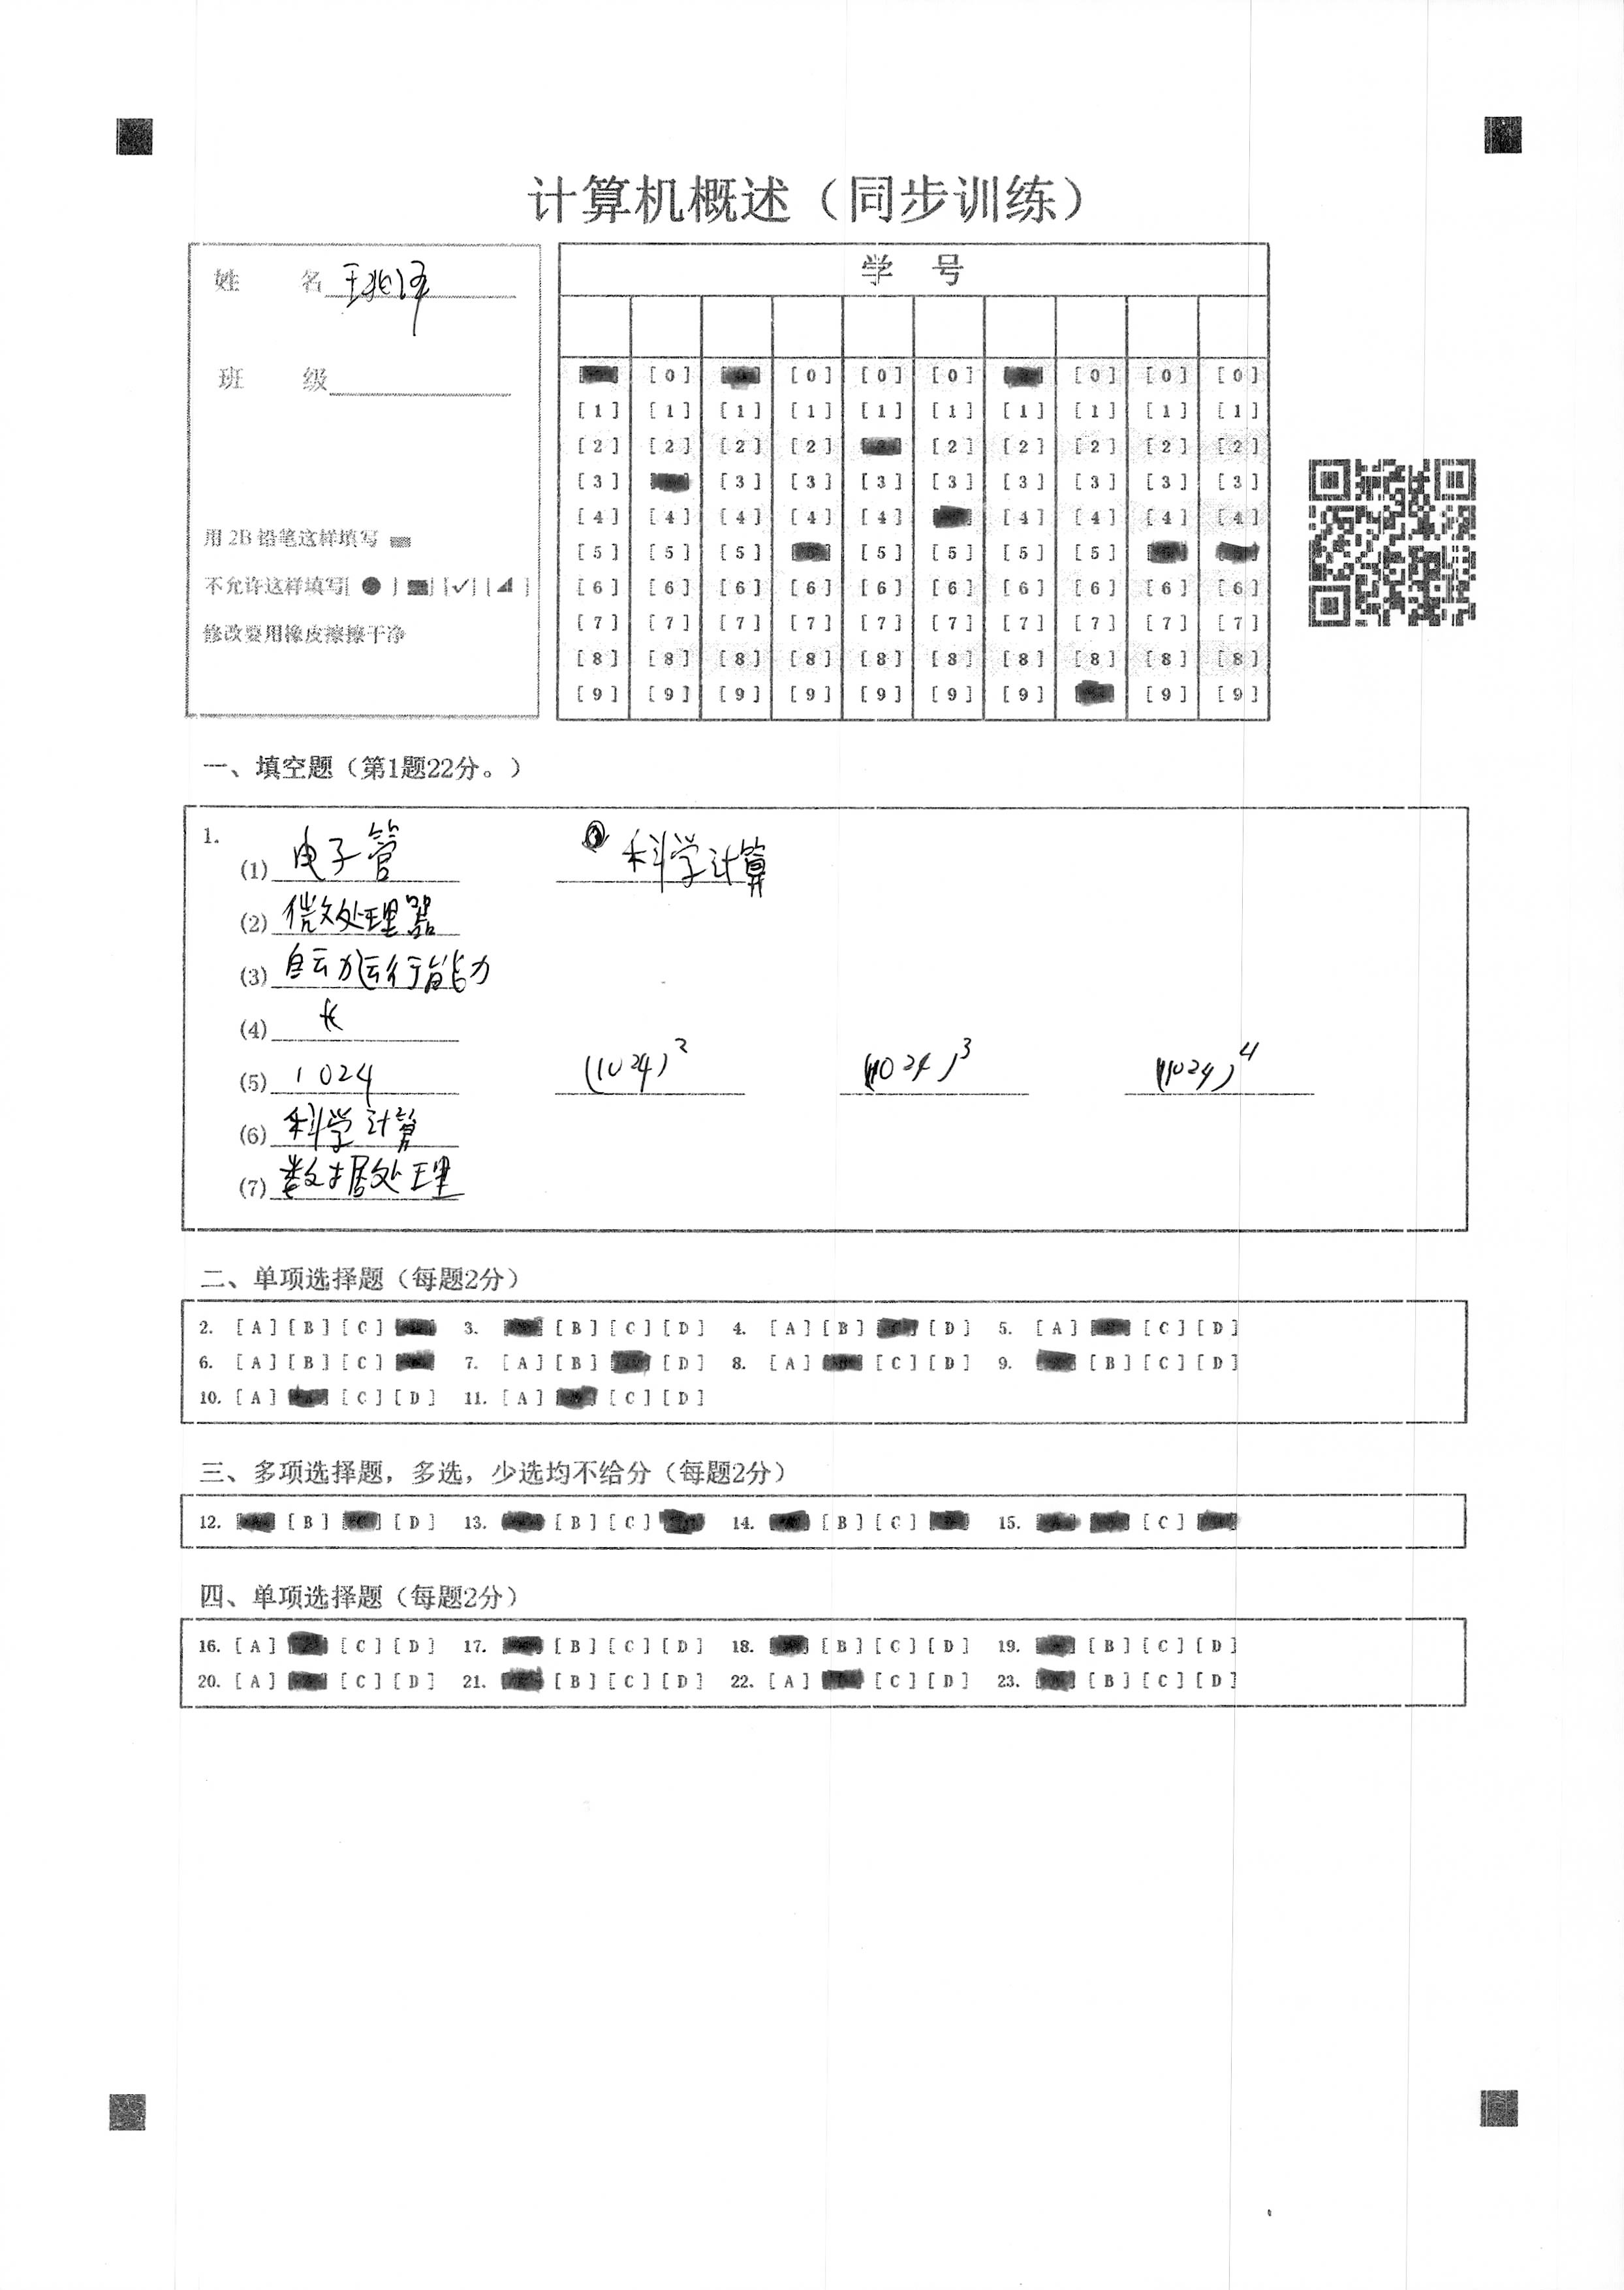 计算机概述（同步训练）
姓 名 王
班 级
用 2B 铅笔这样填写
不允许这样填写[ ● ] [ ] [✓] [ ]
修改要用橡皮擦擦干净
学 号
[0] [0] [0] [0] [0] [0] [0]
[1] [1] [1] [1] [1] [1] [1] [1] [1] [1]
[2] [2] [2] [2] [2] [2] [2] [2] [2]
[3] [3] [3] [3] [3] [3] [3] [3] [3]
[4] [4] [4] [4] [4] [4] [4] [4] [4]
[5] [5] [5] [5] [5] [5] [5]
[6] [6] [6] [6] [6] [6] [6] [6] [6] [6]
[7] [7] [7] [7] [7] [7] [7] [7] [7] [7]
[8] [8] [8] [8] [8] [8] [8] [8] [8] [8]
[9] [9] [9] [9] [9] [9] [9] [9] [9]
一、填空题（第1题22分。）
1.
(1) 电子管 科学计算
(2) 微处理器
(3) 自动运行能力
(4) 长
(5) 1024 (1024)² (1024)³ (1024)⁴
(6) 科学计算
(7) 数据处理
二、单项选择题（每题2分）
2. [A] [B] [C] 3. [B] [C] [D] 4. [A] [B] [D] 5. [A] [C] [D]
6. [A] [B] [C] 7. [A] [B] [D] 8. [A] [C] [D] 9. [B] [C] [D]
10. [A] [C] [D] 11. [A] [C] [D]
三、多项选择题，多选，少选均不给分（每题2分）
12. [B] [D] 13. [B] [C] 14. [B] [C] 15. [C]
四、单项选择题（每题2分）
16. [A] [C] [D] 17. [B] [C] [D] 18. [B] [C] [D] 19. [B] [C] [D]
20. [A] [C] [D] 21. [B] [C] [D] 22. [A] [C] [D] 23. [B] [C] [D]